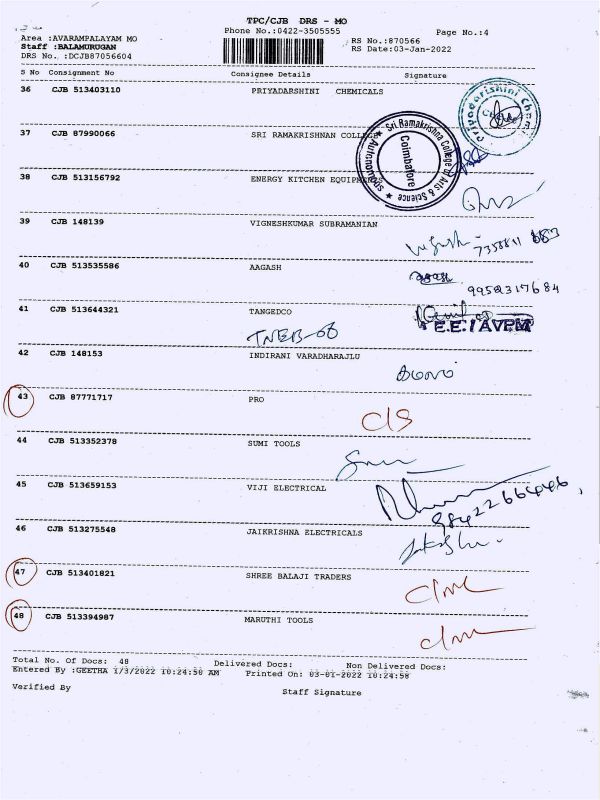 TPC/CJB DRS - MO
Phone No.:0422-3505555
Page No.:4
Area :AVARAMPALAYAM MO
RS No.:870566
Staff :BALAMURUGAN
RS Date:03-Jan-2022
DRS No.:DCJB87056604
S No Consignment No Consignee Details Signature
36 CJB 513403110 PRIYADARSHINI CHEMICALS
Priyadarishini Che
37 CJB 87990066 SRI RAMAKRISHNAN COLLEGE
Sri Ramakrishna College of Arts & Science
Coimbatore
38 CJB 513156792 ENERGY KITCHEN EQUIPMENTS
39 CJB 148139 VIGNESHKUMAR SUBRAMANIAN
40 CJB 513535586 AAGASH
9952317684
41 CJB 513644321 TANGEDCO
E.E./AVPM
TNEB-
42 CJB 148153 INDIRANI VARADHARAJLU
43 CJB 87771717 PRO
C/S
44 CJB 513352378 SUMI TOOLS
45 CJB 513659153 VIJI ELECTRICAL
46 CJB 513275548 JAIKRISHNA ELECTRICALS
47 CJB 513401821 SHREE BALAJI TRADERS
48 CJB 513394987 MARUTHI TOOLS
Total No. Of Docs: 48 Delivered Docs: Non Delivered Docs:
Entered By :GEETHA 1/3/2022 10:24:50 AM Printed On: 03-01-2022 10:24:58
Verified By Staff Signature